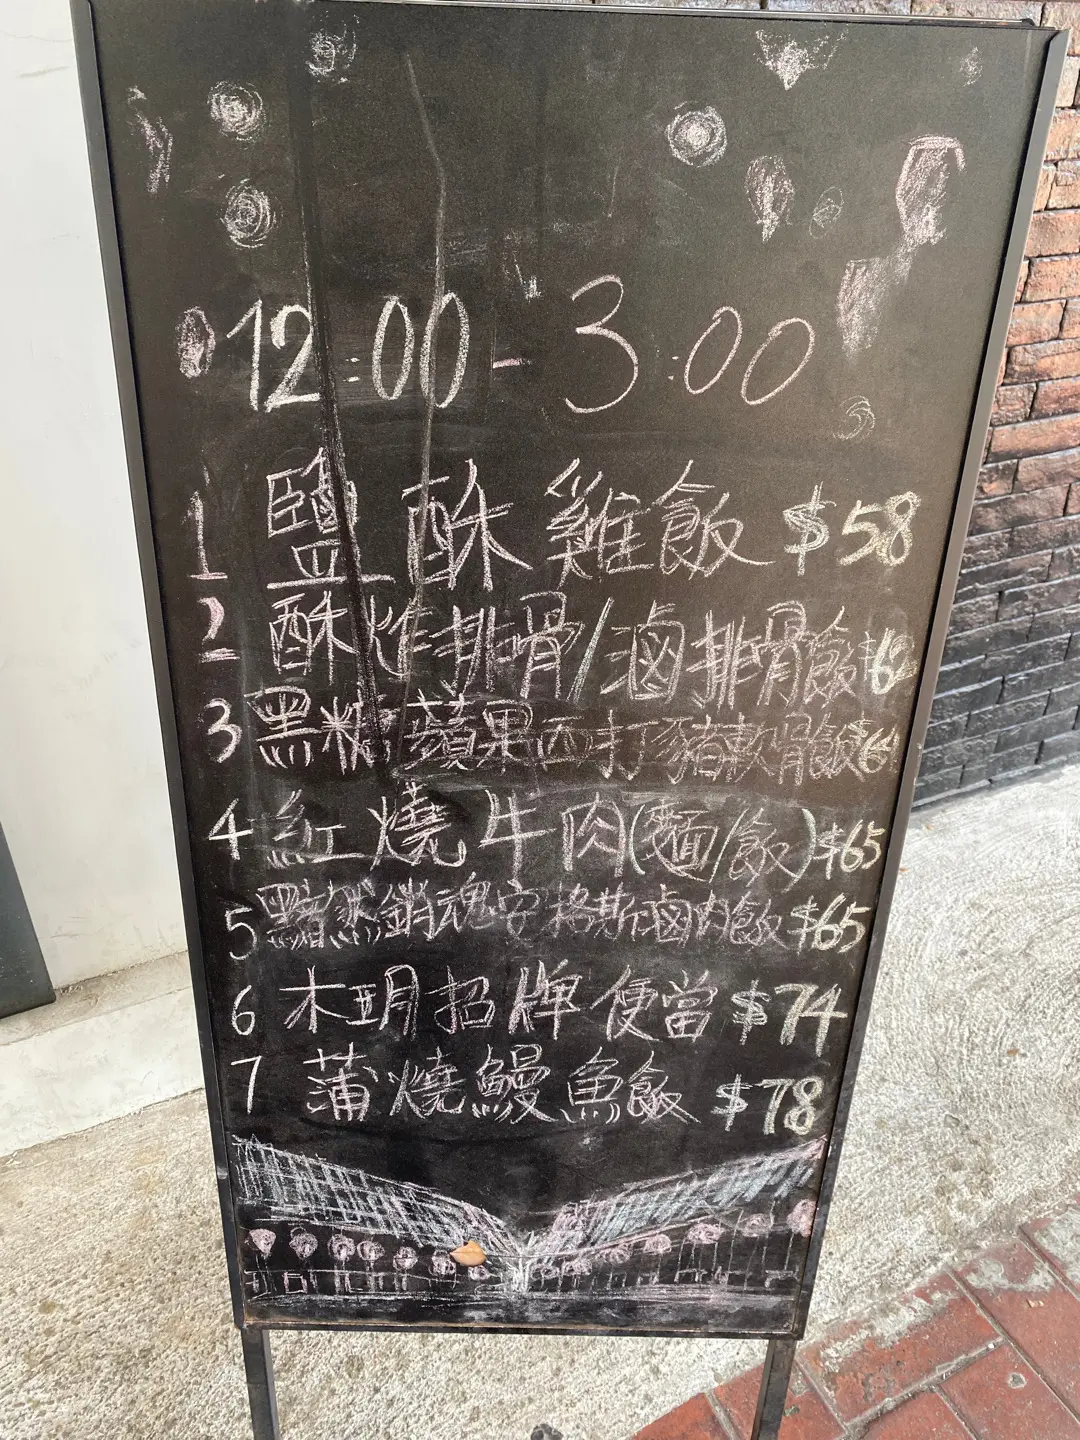 12:00 - 3:00
1 鹽酥雞飯 $58
2 酥炸排骨/滷排骨飯
3 黑糖蘋果西打豬軟骨飯
4 紅燒牛肉(麵/飯) $65
5 黯然銷魂安格斯滷肉飯 $65
6 木玥招牌便當 $74
7 蒲燒鰻魚飯 $78